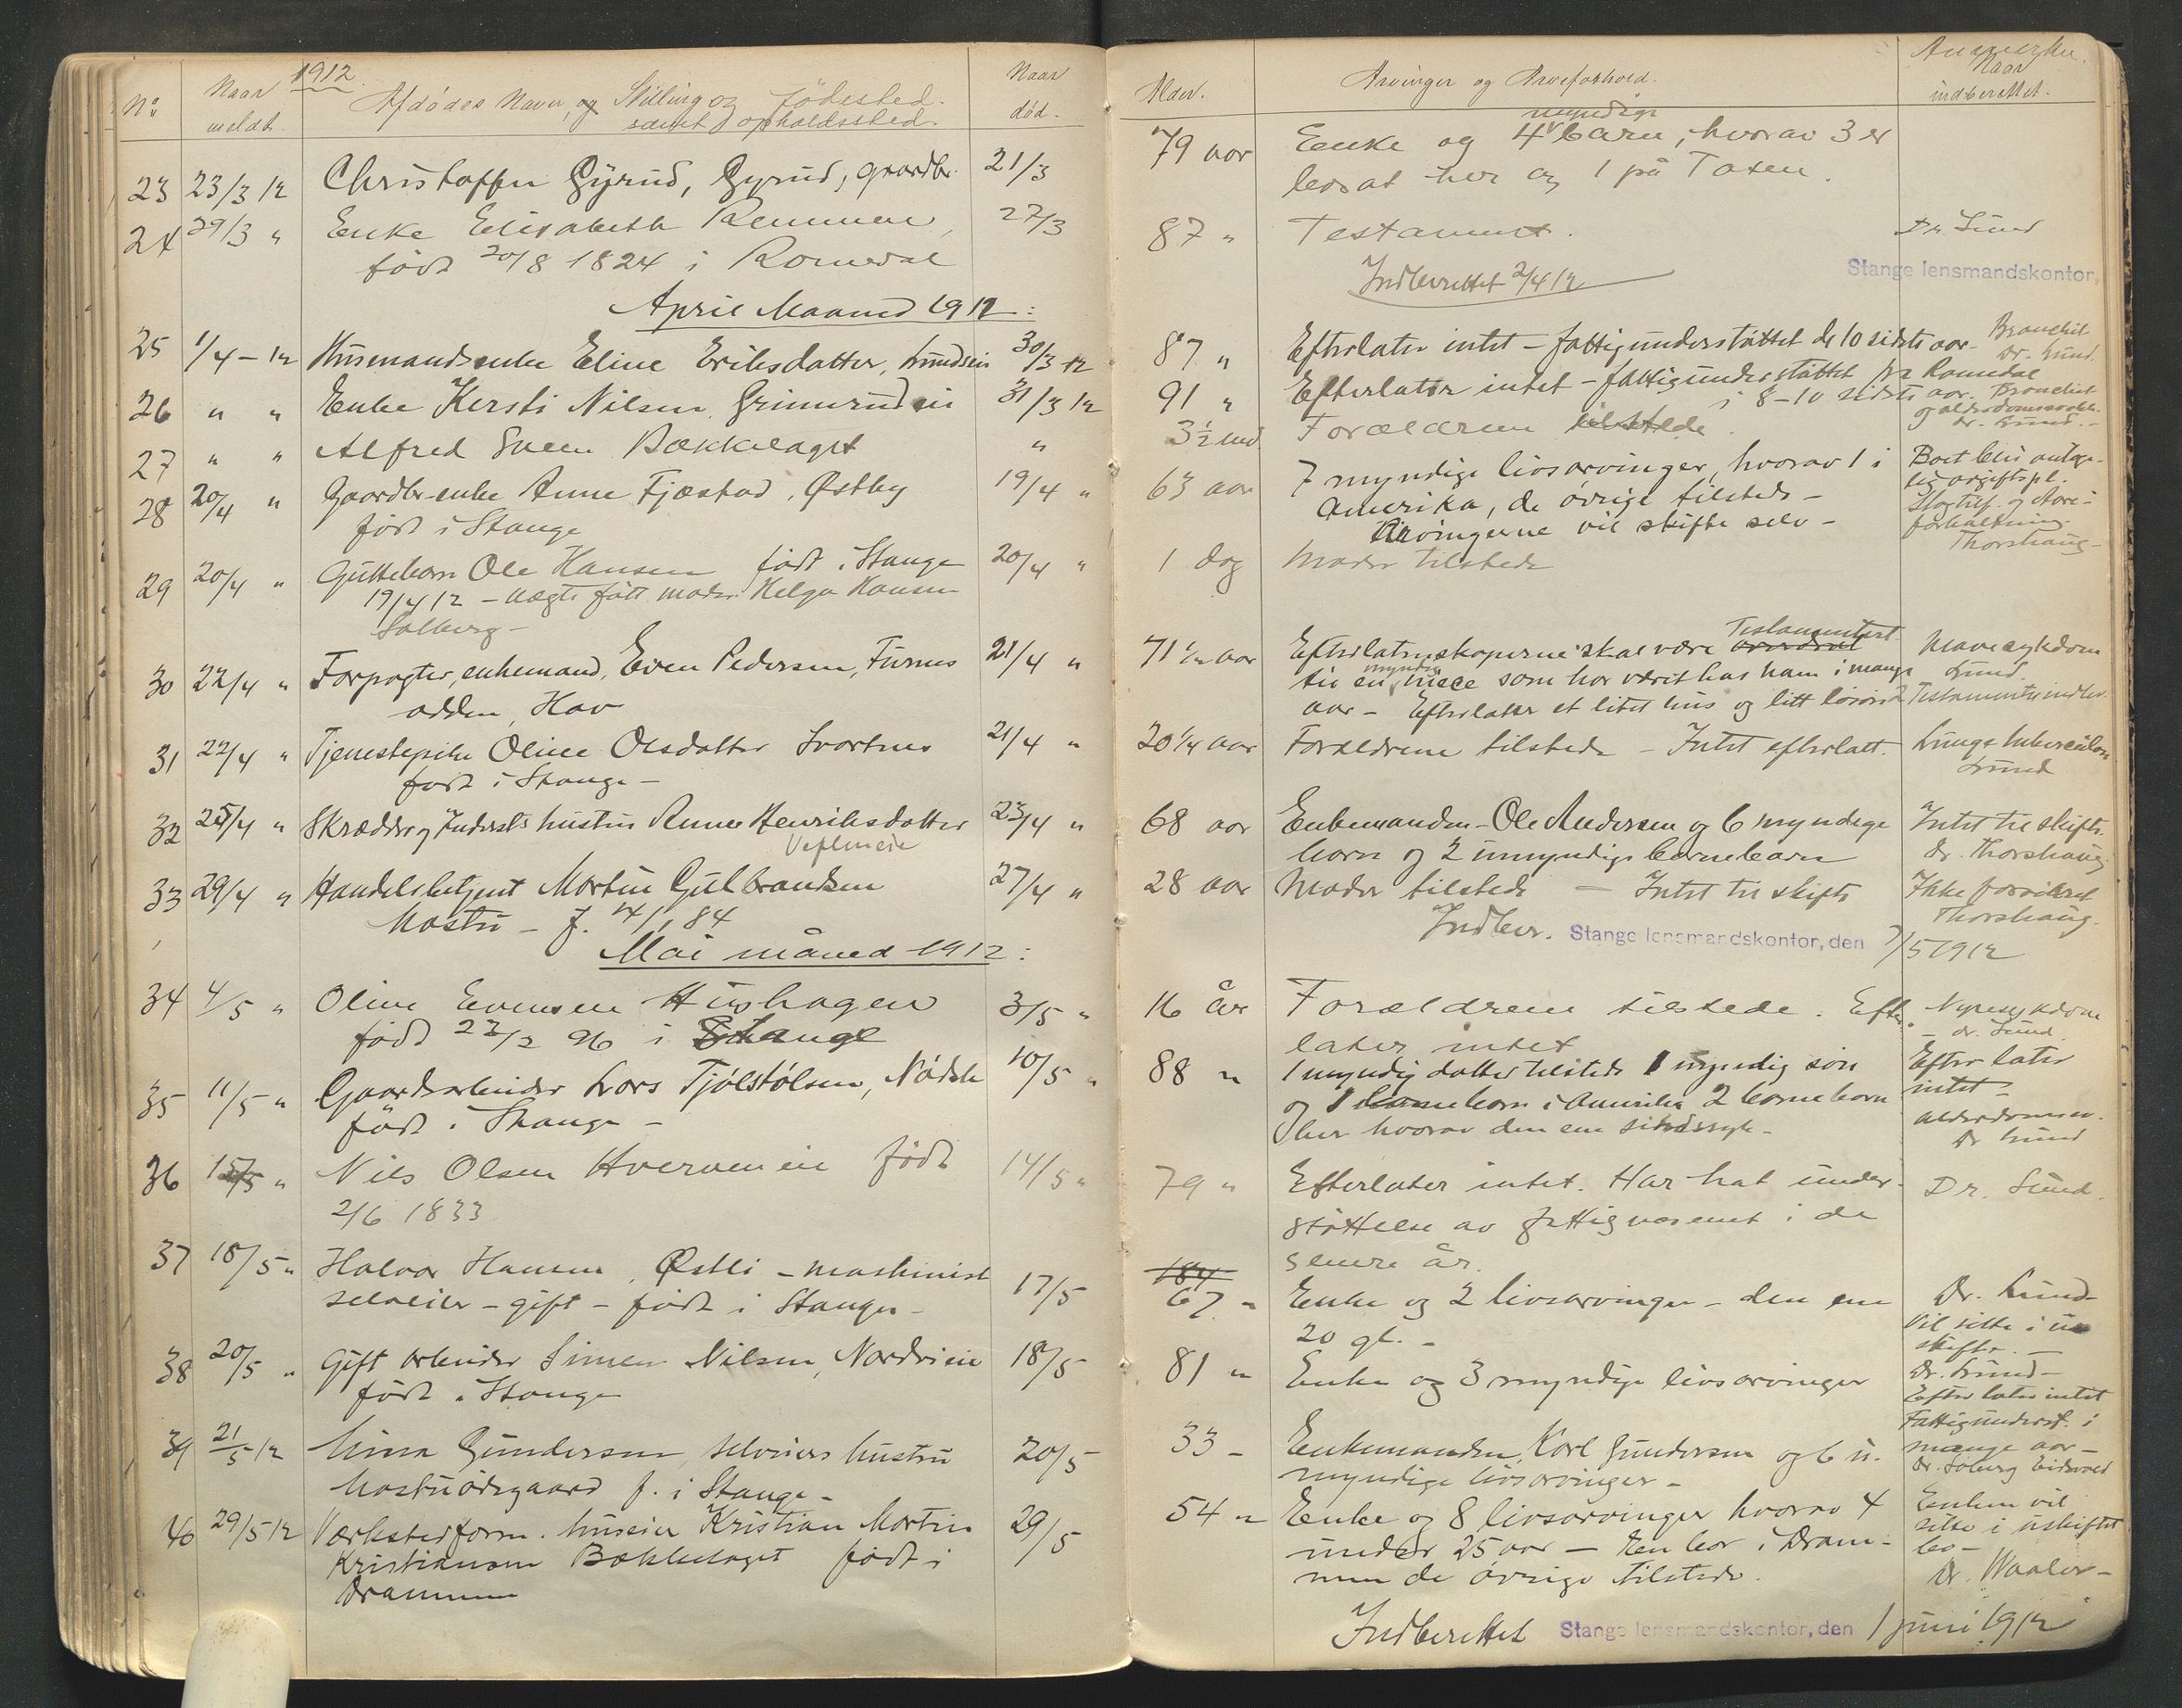 1912.
No
Naar
meldt.
Afdødes Navn, og Stilling og Fødested.
samt opholdssted.
Naar
død.
23 23/3 12 Christoffer Gyrud, Gyrud, gaardbr. 21/3
24 29/3 " Enke Elisabeth Remmen, 27/3
født 20/8 1824 i Romedal
April Maaned 1912:
25 1/4-12 Husmandsenke Eline Eriksdatter, Lundseie 30/3 12
26 " " Enke Kersti Nilsen Grimerudeie 31/3 12
27 " " Alfred Sveen Bækkelaget "
28 20/4 " Gaardbr.enke Anne Fjæstad, Østby 19/4 "
født i Stange
29 20/4 " Guttebarn Ole Hansen født i Stange 20/4 "
19/4 12 - uægte født moder Helga Hansen
Solberg -
30 22/4 " Forpagter, enkemand, Even Pedersen, Furnes 21/4 "
odden, Hov
31 22/4 " Tjenestepike Oline Olsdatter Svartnes 21/4 "
født i Stange -
32 25/4 " Skrædder og Inderstshustru Anne Henriksdatter 23/4 "
33 29/4 " Handelsbetjent Martin Gulbrandsen 27/4 "
Mostu - f. 14/1 84
Mai måned 1912:
34 4/5 " Oline Evensen Hushagen 3/5 "
født 23/2 96 i Stange
35 11/5 " Gaardsarbeider Lars Tjølstølsen, Nødsle 10/5 "
født i Stange -
36 15/5 " Nils Olsen Hverveneie født 14/5 "
2/6 1833
37 18/5 " Halvor Hansen, Østli - maskinist
selveier - gift - født i Stange - 17/5
38 20/5 " Gift arbeider Simen Nilsen, Nordvieie 18/5
født i Stange
39 21/5 12 Mina Gundersen, selveiers hustru 20/5
Mostuødegaard f. i Stange -
40 29/5 12 Værkstedform. huseier Kristian Martin 29/5
Kristiansen Bækkelaget født i
Drammen
Alder.
Arvinger og Arveforhold.
Anmerkn.
Naar
indberettet.
myndige
79 aar Enke og 4 barn, hvorav 3 er
bosat her og 1 på Toten.
87 " Testament. Dr. Lund
Indberettet 2/4 12
Stange lensmandskontor,
87 " Efterlater intet - fattigunderstøttet de 10 sidste aar - Bronchit
Dr. Lund.
91 " Efterlater intet - fattigunderstøttet fra Romedal
i 8-10 sidste aar. Bronchit
og alderdomssvækk.
Dr. Lund. -
3 1/2 md Forældrene tilstede.
63 aar 7 myndige livsarvinger, hvorav 1 i
Amerika, de øvrige tilstede -
Arvingerne vil skifte selv -
Boet blir antage-
lig avgiftspl.
Slagtilf. og Aare-
forkalkning.
Thorshaug -
1 dag Moder tilstede
71 1/2 aar Efterlatenskaperne skal være Testamentert
til en myndig niece som har været hos ham i mange
aar - Efterlater et litet hus og litt løsøre
Mavesykdom
Lund.
Testamente indlev.
20 1/4 aar Forældrene tilstede - Intet efterlatt. Lungetuberculose
Lund
68 aar Enkemanden - Ole Andersen og 6 myndige
barn og 2 umyndige barnebarn
Intet til skifte.
Dr. Thorshaug.
28 aar Moder tilstede - Intet til skifte
Thorshaug.
Indber. Stange lensmandskontor, den 7/5 1912
16 år Forældrene tilstede. Efter-
later intet
Nyresykdom
- dr. Lund
88 " 1 myndig datter tilstede 1 myndig søn
og 1 barnebarn i Amerika 2 barnebarn
her hvorav den ene sindssyk -
Efterlater
intet -
Dr Lund
79 " Efterlater intet. Har hat under-
støttelse av fattigvæsenet i de
senere år.
Dr. Lund.
67 " Enke og 2 livsarvinger - den ene
20 gl. -
Dr. Lund -
Vil sitte i u-
skifte. -
81 " Enke og 3 myndige livsarvinger
Dr. Lund -
Efterlater intet
Fattigunderst. i
mange aar -
33 - Enkemanden, Karl Gundersen og 6 u-
myndige livsarvinger -
Dr. Soberg Eidsvold
54 " Enke og 8 livsarvinger hvorav 4
under 25 aar - En bor i Dram-
men de øvrige tilstede.
Enken vil
sitte i uskiftet
bo -
Dr. Waaler -
Indberettet Stange lensmandskontor, den 1 juni 1912